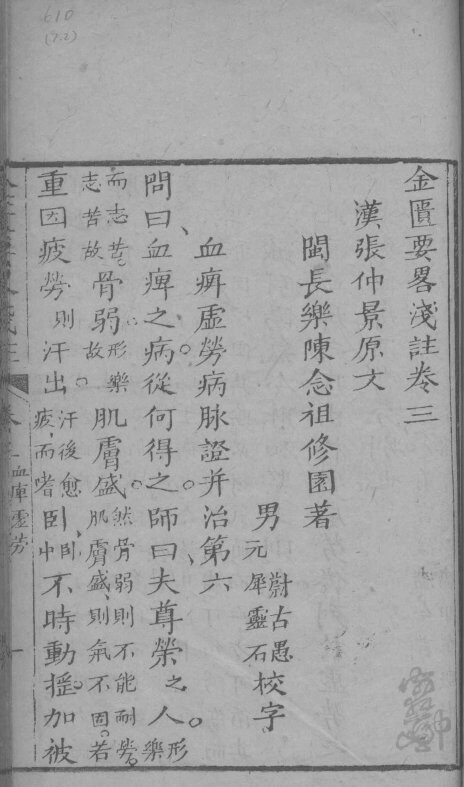 610
(7.2)
金匱要畧淺註卷三
漢張仲景原文
閩長樂陳念祖修園著
男
蔚古愚
元犀靈石
校字
血痹虛勞病脉證并治第六
問曰血痹之病從何得之師曰夫尊榮之人形樂
而志苦志苦故骨弱形樂故肌膚盛然骨弱則不能耐勞肌膚盛則氣不固若
重因疲勞則汗出汗後愈疲而嗜臥臥中不時動搖加被
血痹虛勞
一